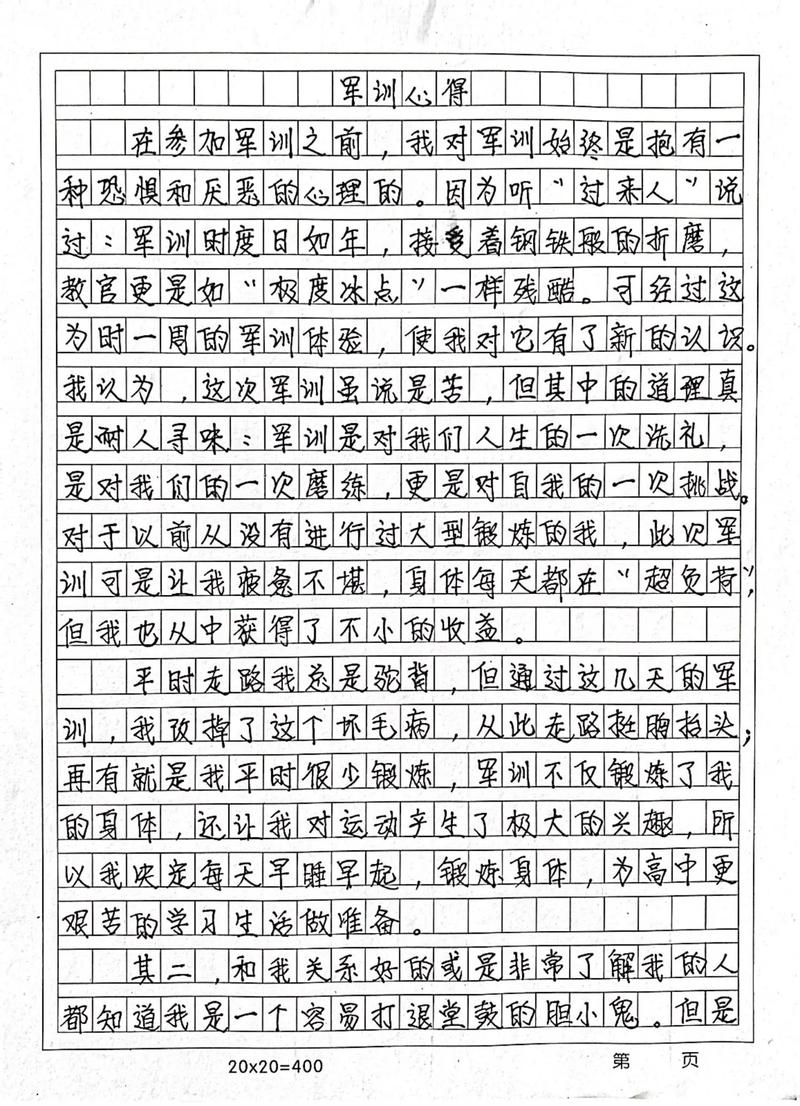 军训心得
在参加军训之前，我对军训始终是抱有一
种恐惧和厌恶的心理的。因为听“过来人”说
过：军训时度日如年，接受着钢铁般的折磨，
教官更是如“极度冰点”一样残酷。可经过这
为时一周的军训体验，使我对它有了新的认识。
我认为，这次军训虽说是苦，但其中的道理真
是耐人寻味：军训是对我们人生的一次洗礼，
是对我们的一次磨练，更是对自我的一次挑战。
对于以前从没有进行过大型锻炼的我，此次军
训可是让我疲惫不堪，身体每天都在“超负荷”，
但我也从中获得了不小的收益。
平时走路我总是驼背，但通过这几天的军
训，我改掉了这个坏毛病，从此走路挺胸抬头；
再有就是我平时很少锻炼，军训不仅锻炼了我
的身体，还让我对运动产生了极大的兴趣，所
以我决定每天早睡早起，锻炼身体，为高中更
艰苦的学习生活做准备。
其二，和我关系好的或是非常了解我的人
都知道我是一个容易打退堂鼓的胆小鬼。但是
20×20=400 第 页